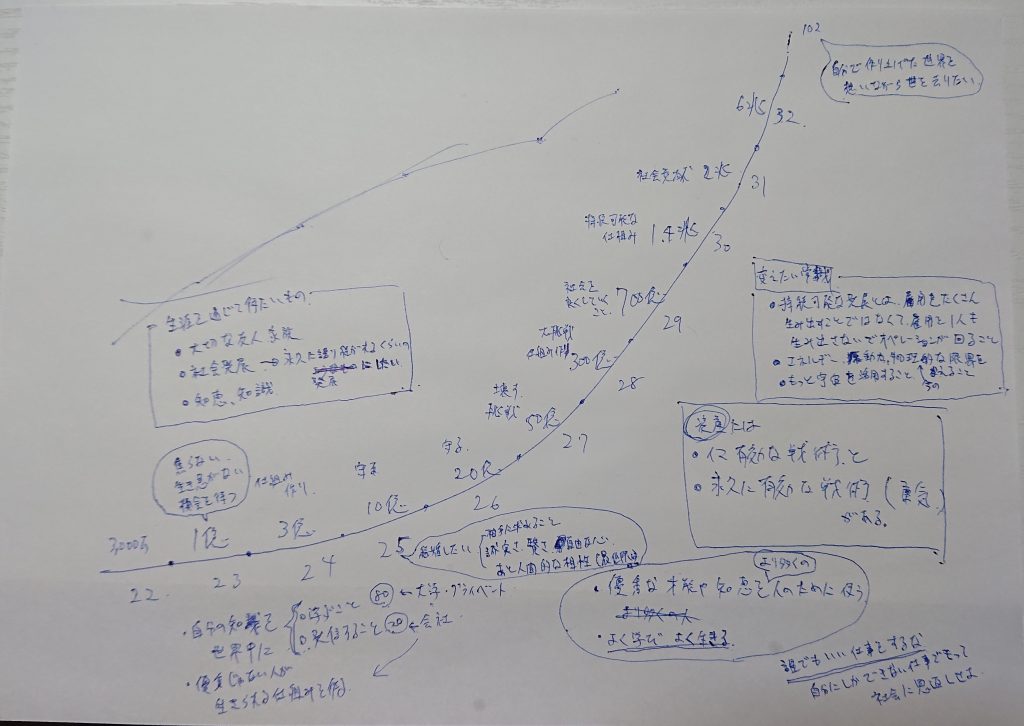 102
自分で作り上げた世界を
想いながら世を去りたい.
6兆
32
社会貢献 2兆
31
持続可能な
仕組み 1.4兆
30
社会を
良くしていく
こと. 700億
29
大挑戦
仕組み作り 300億
28
壊す.
挑戦 50億
27
守る 20億
26
守る 10億
25
仕組み
作り. 3億
24
焦らない.
生き急がない
機会を待つ
1億
23
3,000万
22
生涯を通じて得たいもの.
・大切な友人 家族
・社会発展 → 永久に語り継がれるくらいの
発展 にしたい
・知恵、知識
変えたい常識
・持続可能な発展とは、雇用をたくさん
生み出すことではなくて、雇用を1人も
生み出さないでオペレーションが回ること
・エネルギー 物理的な限界を
・もっと宇宙を活用すること ↑ 超えること
資産とは
・永久に有効な戦術 (勇気)
がある。
結婚したい
相手に求めること
誠実さ、賢さ 自由な心、
あと人間的な相性
より多くの
・優秀な才能や知恵を人のために使う
より多くの人
・よく学び、よく生きる.
・自分の知識を
世界中に
・学ぶこと 80 ← 大学・プライベート
・発信すること 20 ← 会社
・優秀じゃない人が
生きられる仕組みを作る.
誰でもいい仕事をするな
自分にしかできない仕事でもって
社会に恩返しせよ.